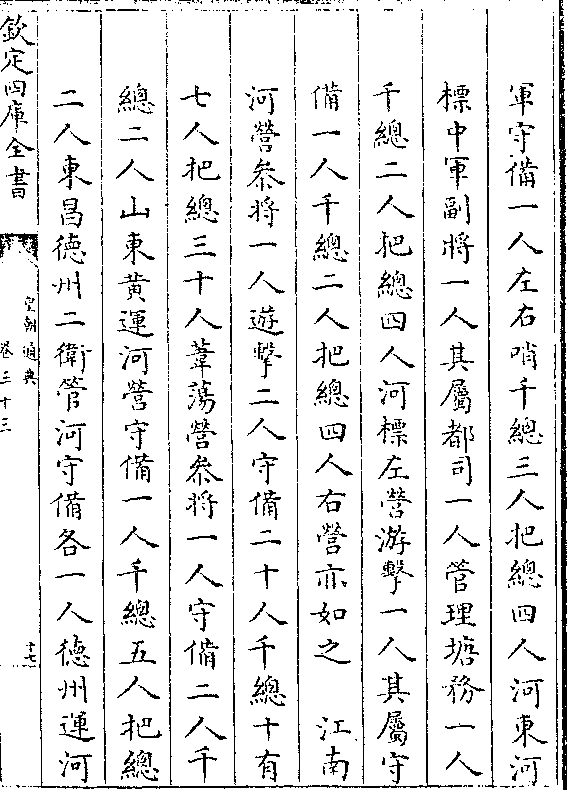 軍守備一人左右哨千總三人把總四人河東河
標中軍副將一人其屬都司一人管理塘務一人
千總二人把總四人河標左營游擊一人其屬守
備一人千總二人把總四人右營亦如之　江南
河營叅將一人遊擊二人守備二十人千總十有
七人把總三十人葦蕩營叅將一人守備二人千
總二人山東黃運河營守備一人千總五人把總
二人東昌德州二衛管河守備各一人德州運河
欽定四庫全書
皇朝通典
卷三十三
十七